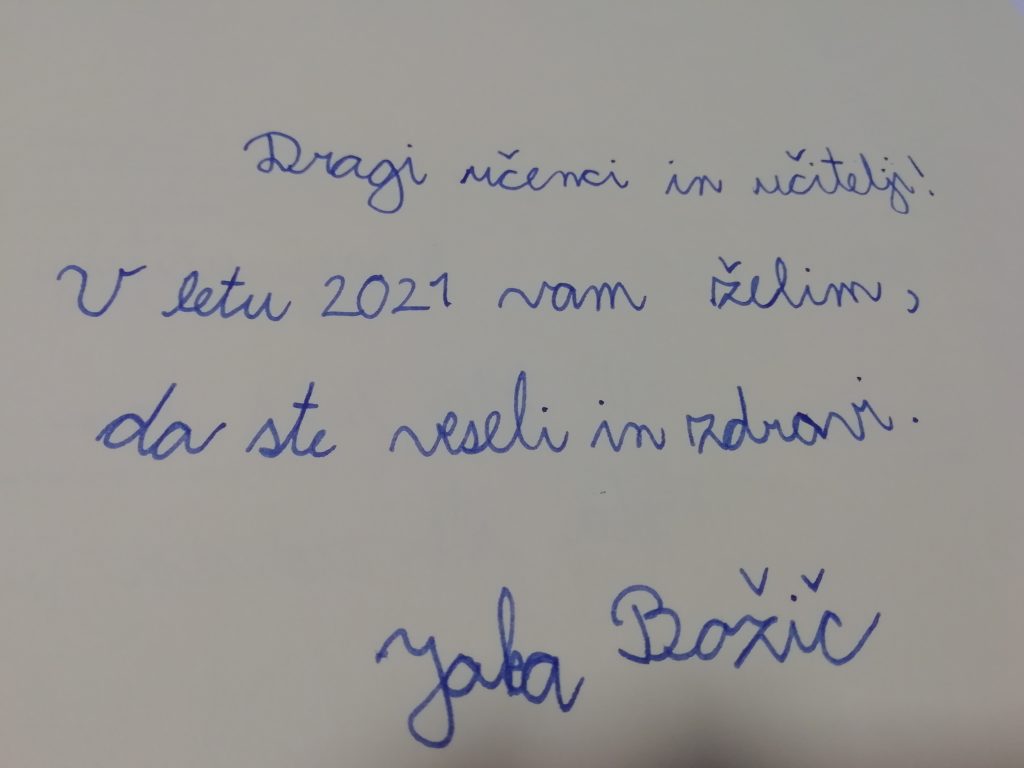 Dragi učenci in učitelji!
V letu 2021 vam želim,
da ste veseli in zdravi.
Jaka Božič